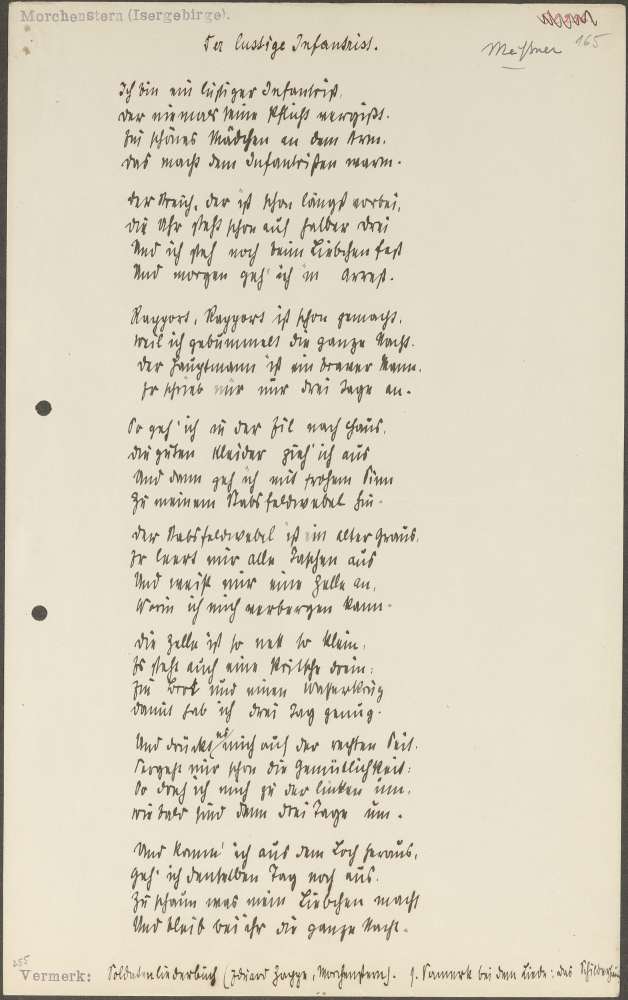 Morchenstern (Isergebirge).
165
Meißner
Der lustige Infantrist.
Ich bin ein lustiger Infantrist,
Der niemals seine Pflicht vergißt.
Ein schönes Mädchen an dem Arm,
Das macht dem Infantristen warm.
Der Streich, der ist schon längst vorbei,
Die Uhr steht schon auf halber drei
Und ich steh noch beim Liebchen fest
Und morgen geh' ich in Arrest.
Rapport, Rapport ist schon gemacht,
Weil ich gebummelt die ganze Nacht.
Der Hauptmann ist ein braver Mann,
Er schrieb mir nur drei Tage an.
So geh' ich in der Eil nach Haus,
Die guten Kleider zieh' ich aus
Und dann geh ich mit frohem Sinn
Zu meinem Stabsfeldwebel hin.
Der Stabsfeldwebel ist ein alter Graus,
Er leert mir alle Taschen aus
Und weist mir eine Zelle an,
Worin ich mich verbergen kann.
Die Zelle ist so nett so klein,
Es steht auch eine Pritsche drein:
Ein Brot und einen Wasserkrug
Damit hab ich drei Tag genug.
Und drückt es mich auf der rechten Seit,
Vergeht mir schon die Gemütlichkeit:
So dreh ich mich zu der linken um,
Wie bald sind denn drei Tage um.
Und komm' ich aus dem Loch heraus,
Geh' ich denselben Tag noch aus.
Zu schaun was mein Liebchen macht
Und bleib bei ihr die ganze Nacht.
255
Vermerk: Soldatenliederbuch (Eduard Zappe, Morchenstern). S. Vermerk bei dem Liede: Das